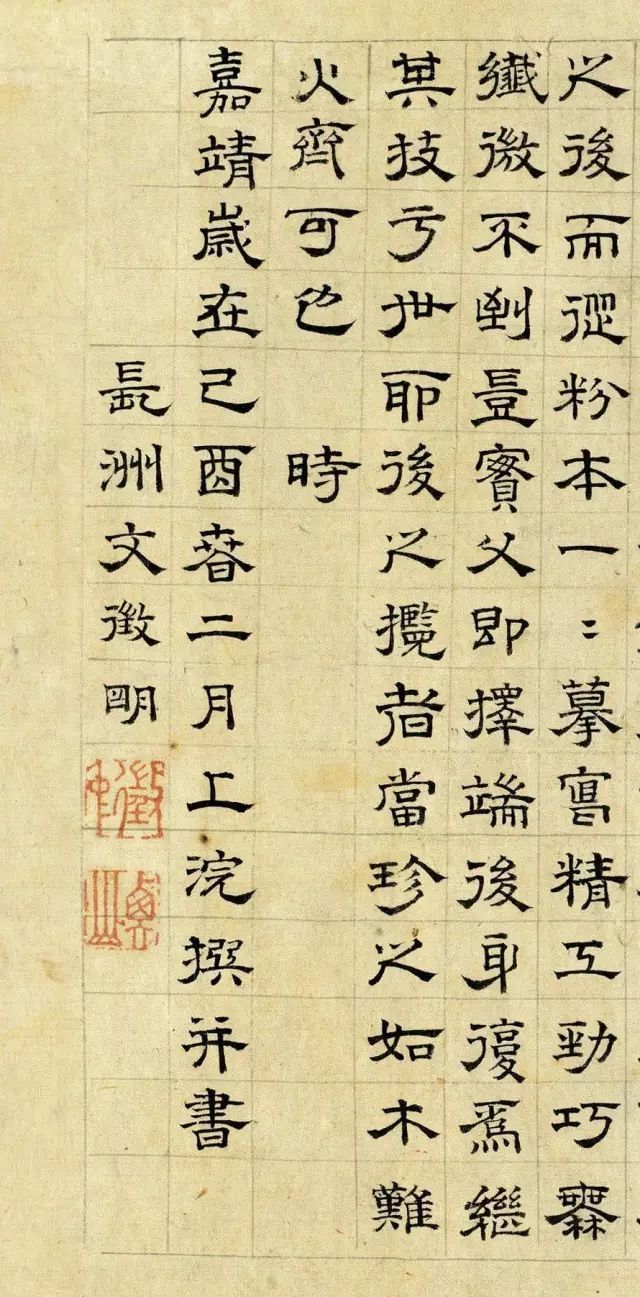 之後而從粉本一〻摹寫精工勁巧無
纖微不到豈實父即擇端後身復爲繼
其技亏世耶後之攬者當珍之如木難
火齊可也　時
嘉靖歲在己酉春二月上浣撰并書
長洲文徵明